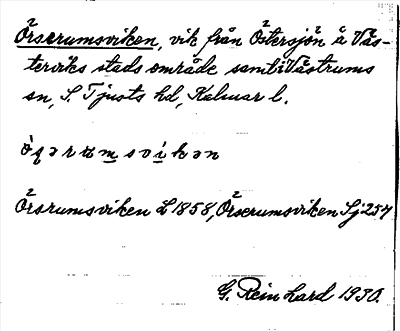 Örserumsviken, vik från Östersjön å Väs-
terviks stads område samt i Västrums
sn, S. Tjusts hd, Kalmar l.
ò̀ṣərùmsvikən
Örsrumsviken L 1858, Örserumsviken Sj 257
G. Reinhard 1930.